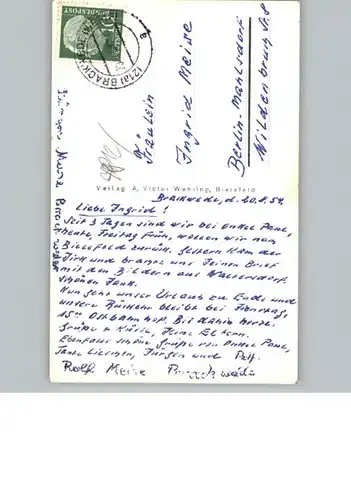 (21a) BRACKWEDE
BUNDESPOST
10
Fräulein
Ingrid Meise
Berlin-Mahlsdorf
Verlag A. Victor Wehling, Bielefeld
Brackwede, d. 20.8.54.
Liebe Ingrid!
Seit 3 Tagen sind wir bei Onkel Paul,
heute, Freitag früh, wollen wir nach
Bielefeld zurück. Gestern kam der
und brachte uns Deinen Brief
mit den Bildern aus Waltersdorf.
Schönen Dank.
Nun geht unser Urlaub zu Ende und
unsere Rückkehr bleibt bei Dienstag,
15 Ostbahnhof. Bis dahin herzl.
Grüße u. Küsse, Deine Eltern.
Ebenfalls schöne Grüße von Onkel Paul,
Tante Lieschen, Jürgen und
Rolf Meise Brackwede